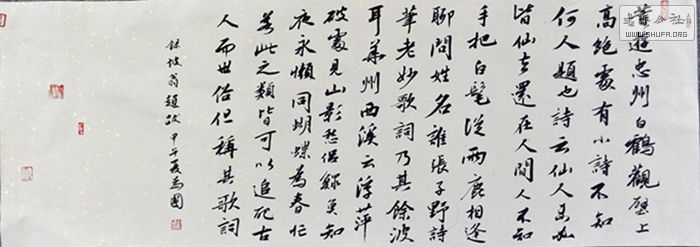 昔遊忠州白鶴觀壁上
高絕處有小詩不知
何人題也詩云仙人未必
皆仙去還在人間人不知
手把白髦從兩鹿相逢
聊問姓名誰張子野詩
筆老妙歌詞乃其餘波
耳華州西溪云浮萍
破處見山影愁侶鰥魚知
夜永懶同蝴蝶為春忙
若此之類皆可以追配古
人而世俗但稱其歌詞
錄坡翁題跋甲午夏為國
WWW.SHUFA.ORG